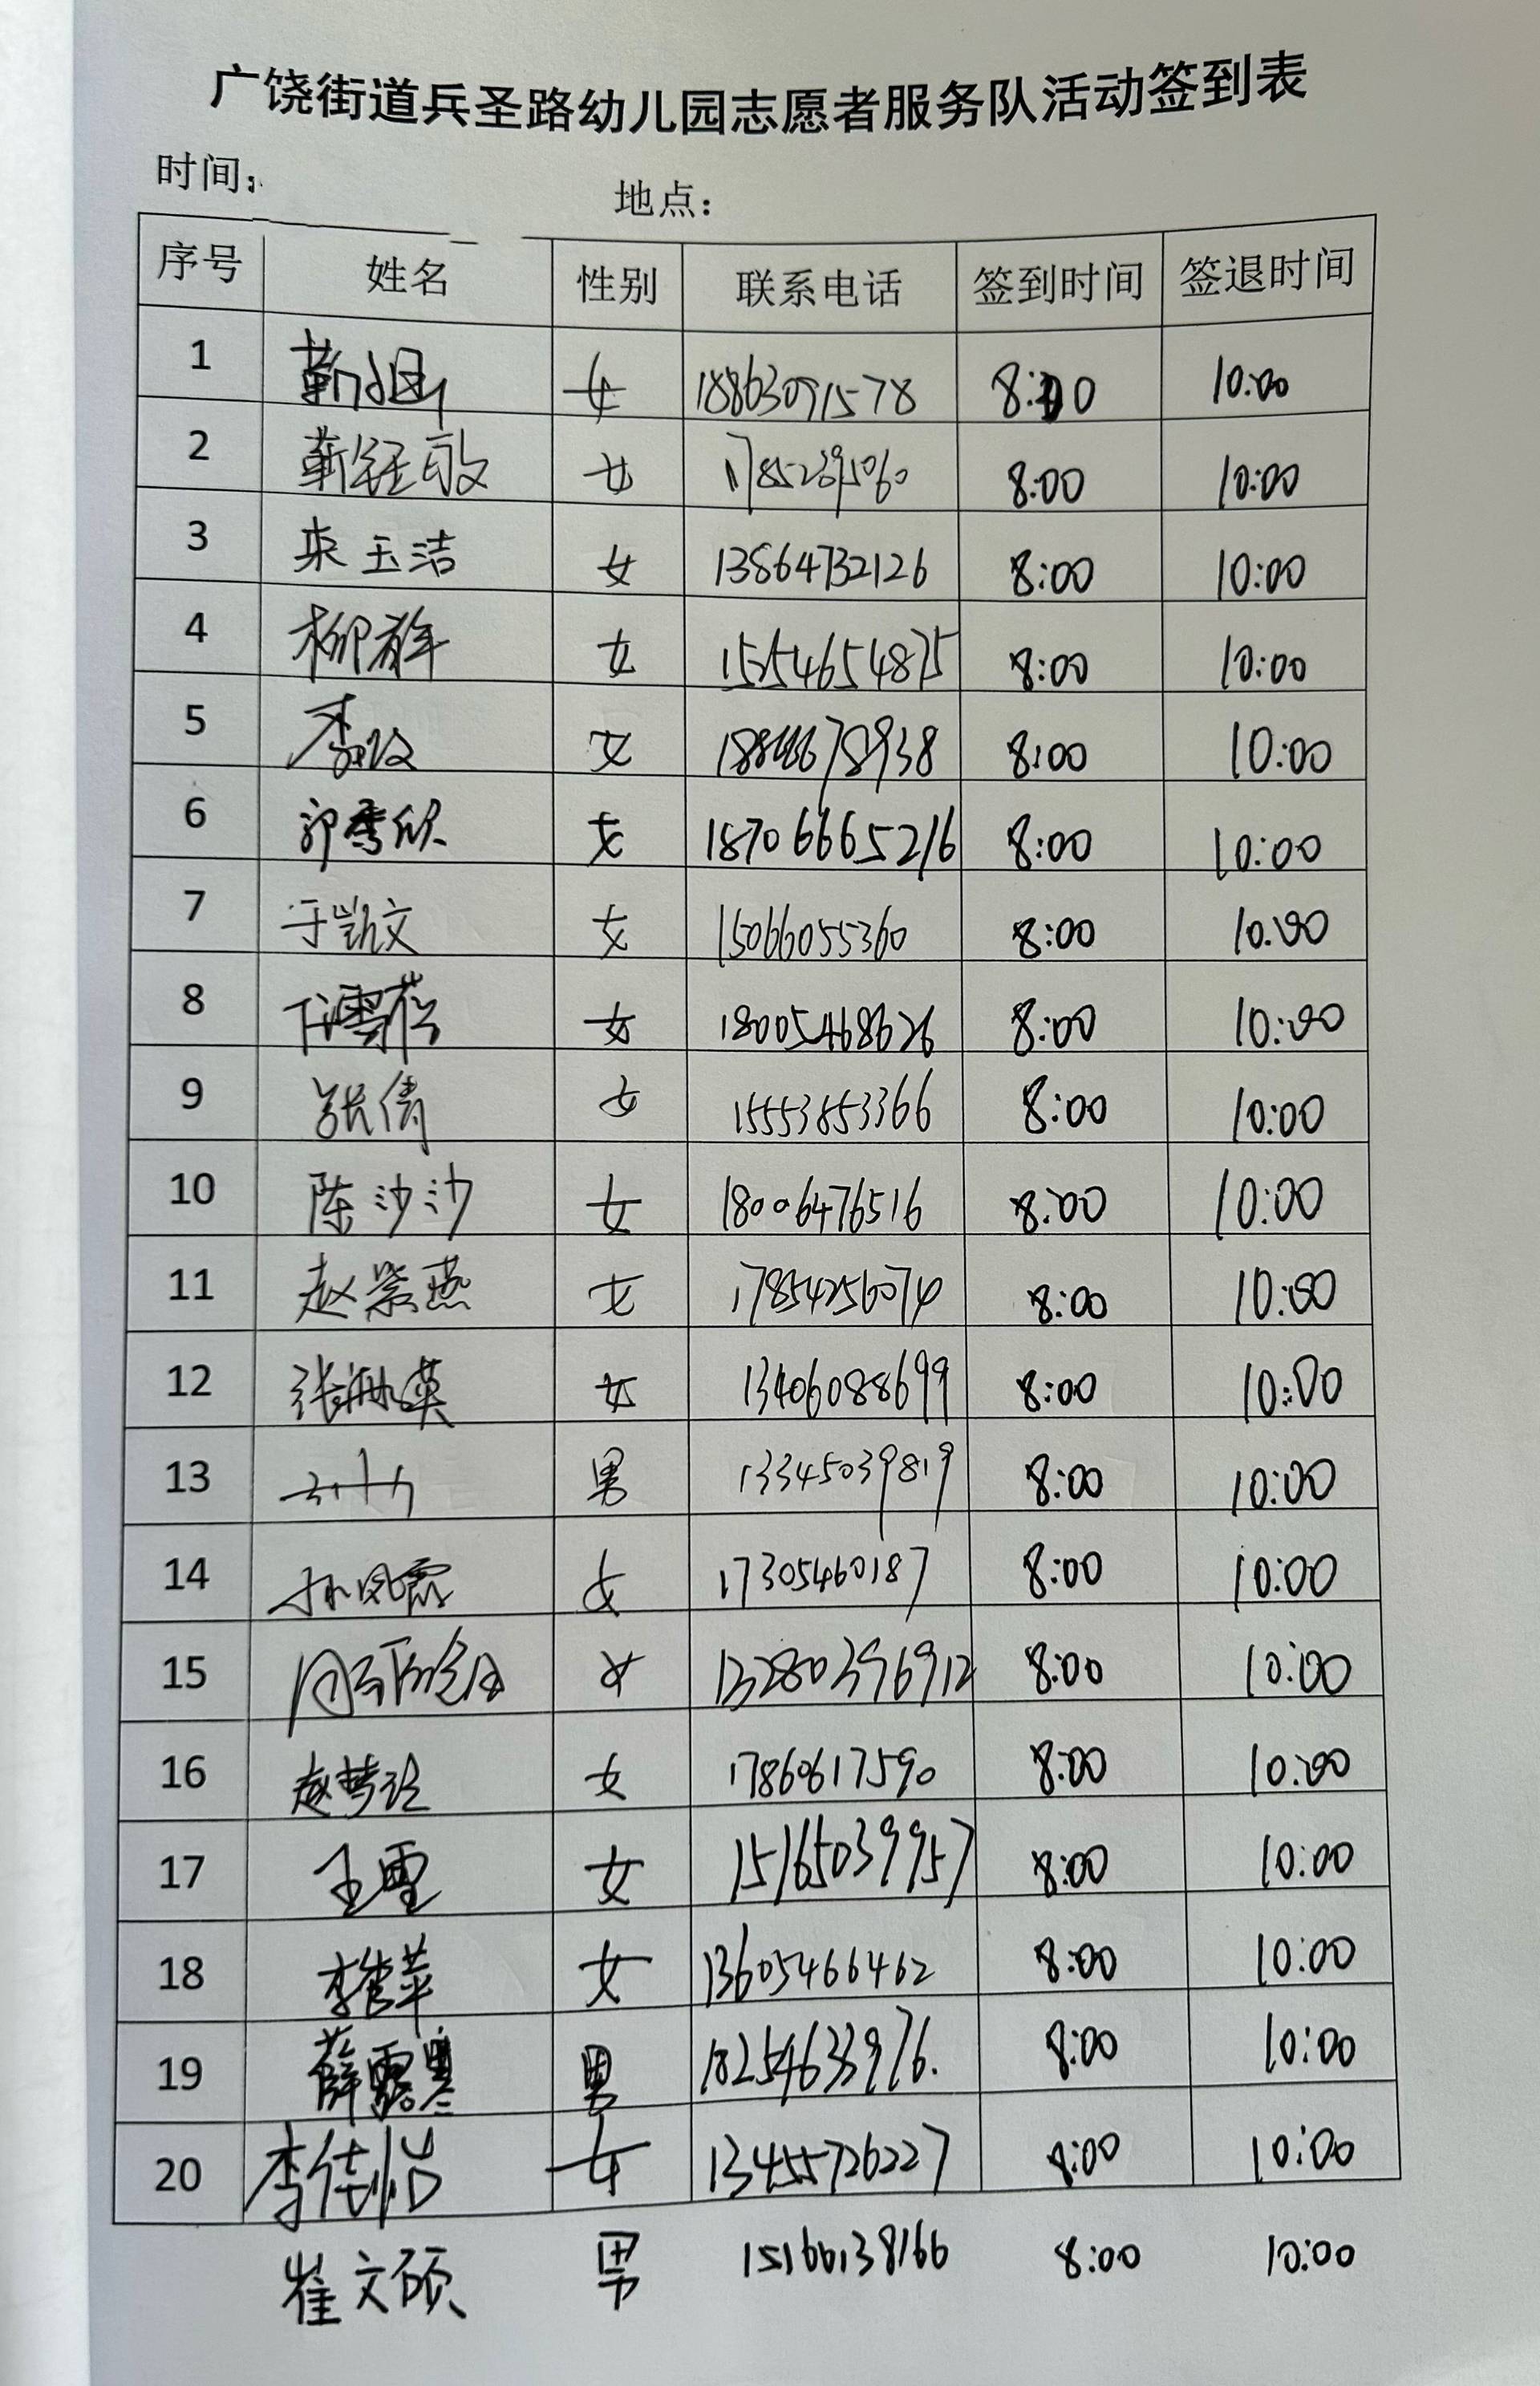 广饶街道兵圣路幼儿园志愿者服务队活动签到表
时间: 地点:
序号 姓名 性别 联系电话 签到时间 签退时间
1 女 18863091578 8:00 10:00
2 女 17852395060 8:00 10:00
3 宋玉洁 女 13864732126 8:00 10:00
4 女 15254654875 8:00 10:00
5 女 8:00 10:00
6 郭秀欣 女 18706665216 8:00 10:00
7 于凯文 女 15066055360 8:00 10:00
8 女 18005468626 8:00 10:00
9 张倩 女 15553853366 8:00 10:00
10 陈沙沙 女 18006476516 8:00 10:00
11 赵紫燕 女 17854256074 8:00 10:00
12 女 13406088699 8:00 10:00
13 男 13345039819 8:00 10:00
14 女 17305460187 8:00 10:00
15 女 13280396912 8:00 10:00
16 女 17860617590 8:00 10:00
17 王雪 女 15165039957 8:00 10:00
18 女 13605466462 8:00 10:00
19 男 18254633976. 8:00 10:00
20 李佳怡 女 13455726227 8:00 10:00
崔文硕 男 15166138166 8:00 10:00